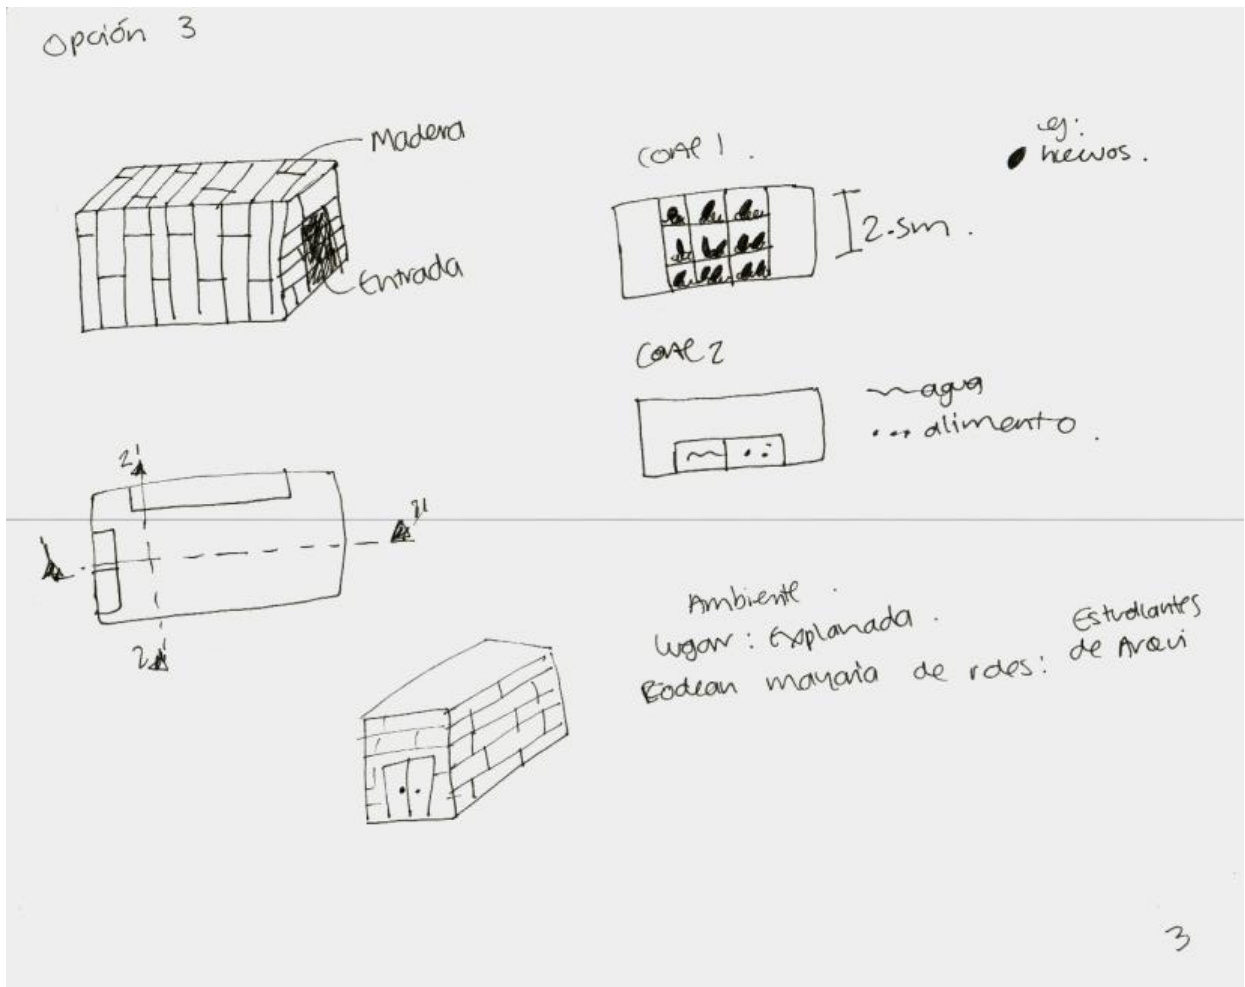 Opción 3
Madera
Entrada
Corte 1.
ej:
huevos.
2.5m.
Corte 2
agua
alimento.
2'
2
Ambiente.
lugar: Explanada.
Rodean mayoria de roles: Estudiantes
de Arqui
3